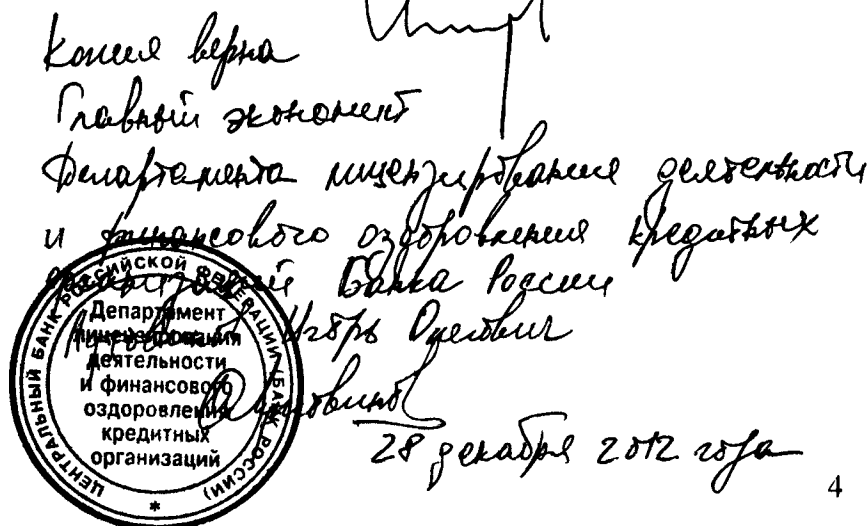 Копия верна
Главный экономист
Департамента лицензирования деятельности
и финансового оздоровления кредитных
организаций Банка России
Игорь Олегович
28 декабря 2012 года
ЦЕНТРАЛЬНЫЙ БАНК РОССИЙСКОЙ ФЕДЕРАЦИИ (БАНК РОССИИ)
*
Департамент
лицензирования
деятельности
и финансового
оздоровления
кредитных
организаций
4